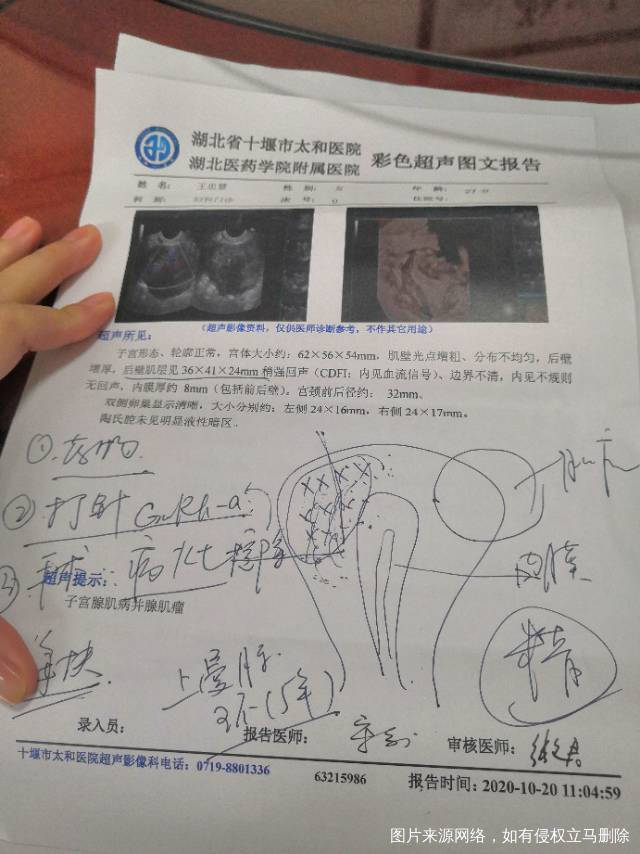 湖北省十堰市太和医院
湖北医药学院附属医院
彩色超声图文报告
姓名: 王 性别: 女 年龄: 27岁
科别: 妇科门诊 床号: 0 住院号:
(超声影像资料，仅供医师诊断参考，不作其它用途)
超声所见:
子宫形态、轮廓正常，宫体大小约: 62×56×54mm，肌壁光点增粗、分布不均匀，后壁
增厚，后壁肌层见36×41×24mm稍强回声（CDFI: 内见血流信号）、边界不清，内见不规则
无回声，内膜厚约 8mm（包括前后壁）。宫颈前后径约: 32mm。
双侧卵巢显示清晰，大小分别约: 左侧24×16mm，右侧24×17mm。
陶氏腔未见明显液性暗区.
① 药物
② 打针 GnRh-a
③ 手术: 病灶
超声提示:
子宫腺肌病并腺肌瘤
内膜
上曼月乐
环 (5年)
录入员:
报告医师:
审核医师:
十堰市太和医院超声影像科电话: 0719-8801336
63215986
报告时间: 2020-10-20 11:04:59
图片来源网络，如有侵权立马删除